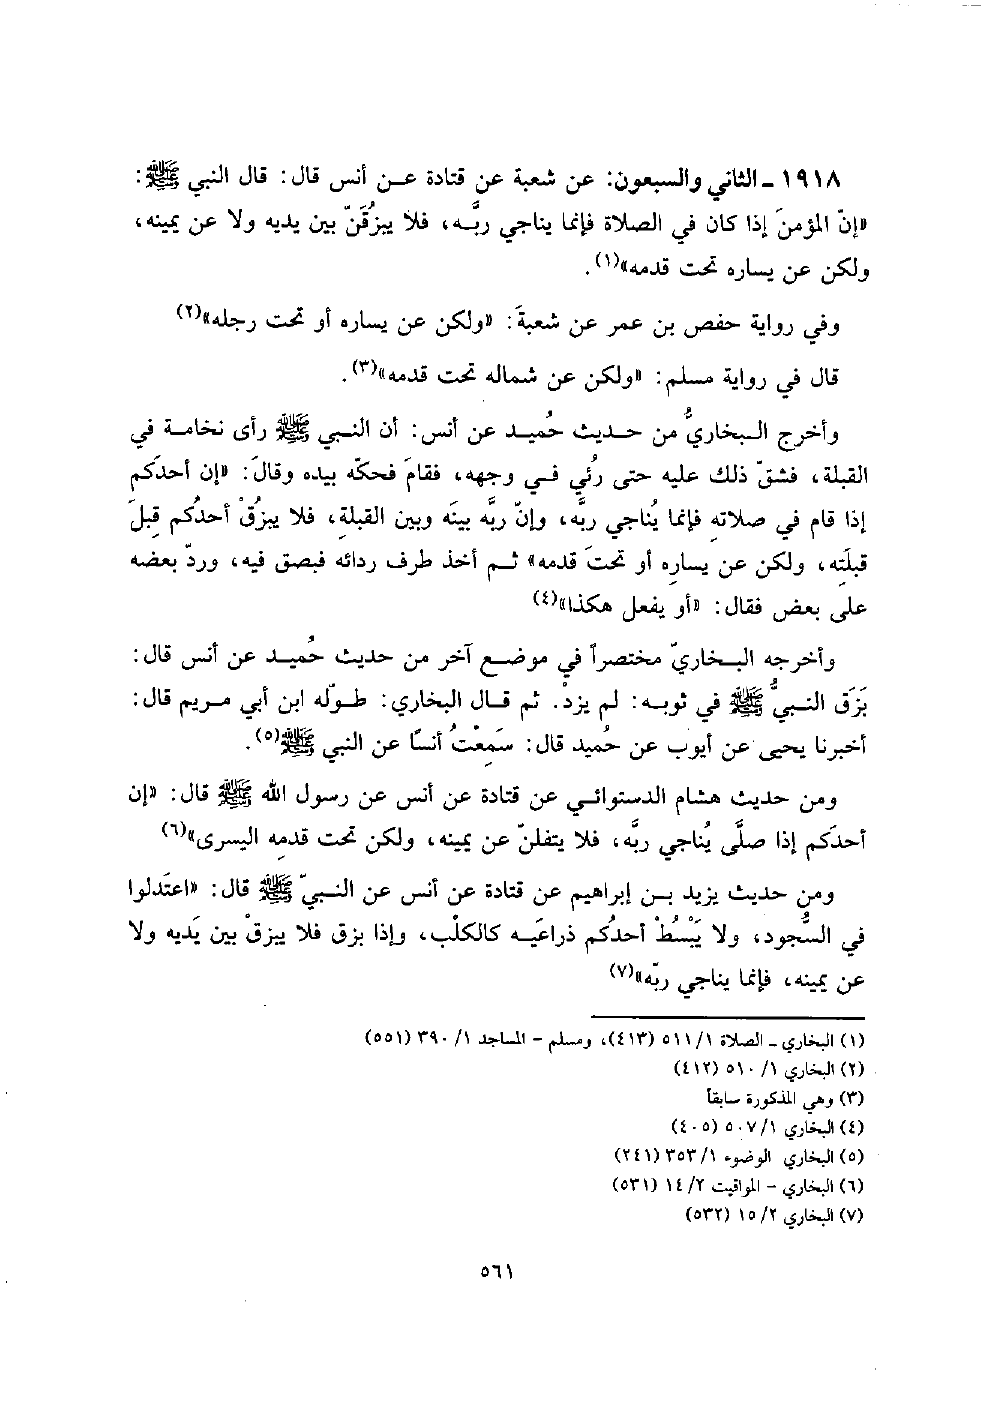 ١٩١٨ ـ الثاني والسبعون: عن شعبة عن قتادة عـن أنس قال: قال النبي ﷺ:
«إنّ المؤمنَ إذا كان في الصلاة فإنما يناجي ربَّـه، فلا يبزُقَنّ بين يديه ولا عن يمينه،
ولكن عن يساره تحت قدمه»(١).
وفي رواية حفص بن عمر عن شعبةَ: «ولكن عن يساره أو تحت رجله»(٢)
قال في رواية مسلم: «ولكن عن شماله تحت قدمه»(٣).
وأخرج الـبخاريُّ من حـديث حُميـد عن أنس: أن النـبي ﷺ رأى نخامـة في
القبلة، فشقّ ذلك عليه حتى رُئي فـي وجهه، فقامَ فحكّه بيده وقالَ: «إن أحدَكم
إذا قام في صلاتهِ فإنما يُناجي ربَّه، وإنّ ربَّه بينَه وبين القبلةِ، فلا يبزُقْ أحدُكم قِبلَ
قبلَتِه، ولكن عن يسارِه أو تحتَ قدمه» ثـم أخذ طرف ردائه فبصق فيه، وردّ بعضه
على بعض فقال: «أو يفعل هكذا»(٤)
وأخرجه الـبـخاريّ مختصراً في موضـع آخر من حديث حُميـد عن أنس قال:
بَزَق النـبيُّ ﷺ في ثوبـه: لم يزدْ. ثم قـال البخاري: طـوّله ابن أبي مـريم قال:
أخبرنا يحيى عن أيوب عن حُميد قال: سَمِعْتُ أنسًا عن النبي ﷺ(٥).
ومن حديث هشام الدستوائـي عن قتادة عن أنس عن رسول الله ﷺ قال: «إن
أحدَكم إذا صلَّى يُناجي ربَّه، فلا يتفلنّ عن يمينه، ولكن تحت قدمِه اليسرى»(٦)
ومن حديث يزيد بـن إبراهيم عن قتادة عن أنس عن النـبيّ ﷺ قال: «اعتَدلوا
في السُّجود، ولا يَبْسُطْ أحدُكم ذراعَيـه كالكلْب، وإذا بزق فلا يبزقْ بين يَديه ولا
عن يمينه، فإنما يناجي ربّه»(٧)
(١) البخاري ـ الصلاة ١/ ٥١١ (٤١٣)، ومسلم - المساجد ١/ ٣٩٠ (٥٥١)
(٢) البخاري ١/ ٥١٠ (٤١٢)
(٣) وهي المذكورة سابقاً
(٤) البخاري ١/ ٥٠٧ (٤٠٥)
(٥) البخاري الوضوء ١/ ٣٥٣ (٢٤١)
(٦) البخاري - المواقيت ٢/ ١٤ (٥٣١)
(٧) البخاري ٢/ ١٥ (٥٣٢)
٥٦١